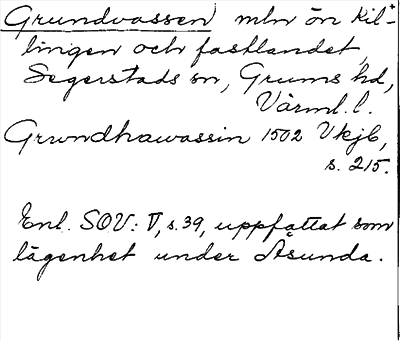 Grundvassen mln ön Kil-
lingen och fastlandet,
Segerstads sn, Grums hd,
Värml. l.
Grwndhawassin 1502 Vkjb,
s. 215.
Enl. SOV: V, s. 39, uppfattat som
lägenhet under Åsunda.